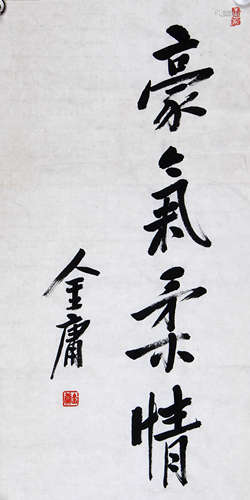 豪氣柔情
金庸